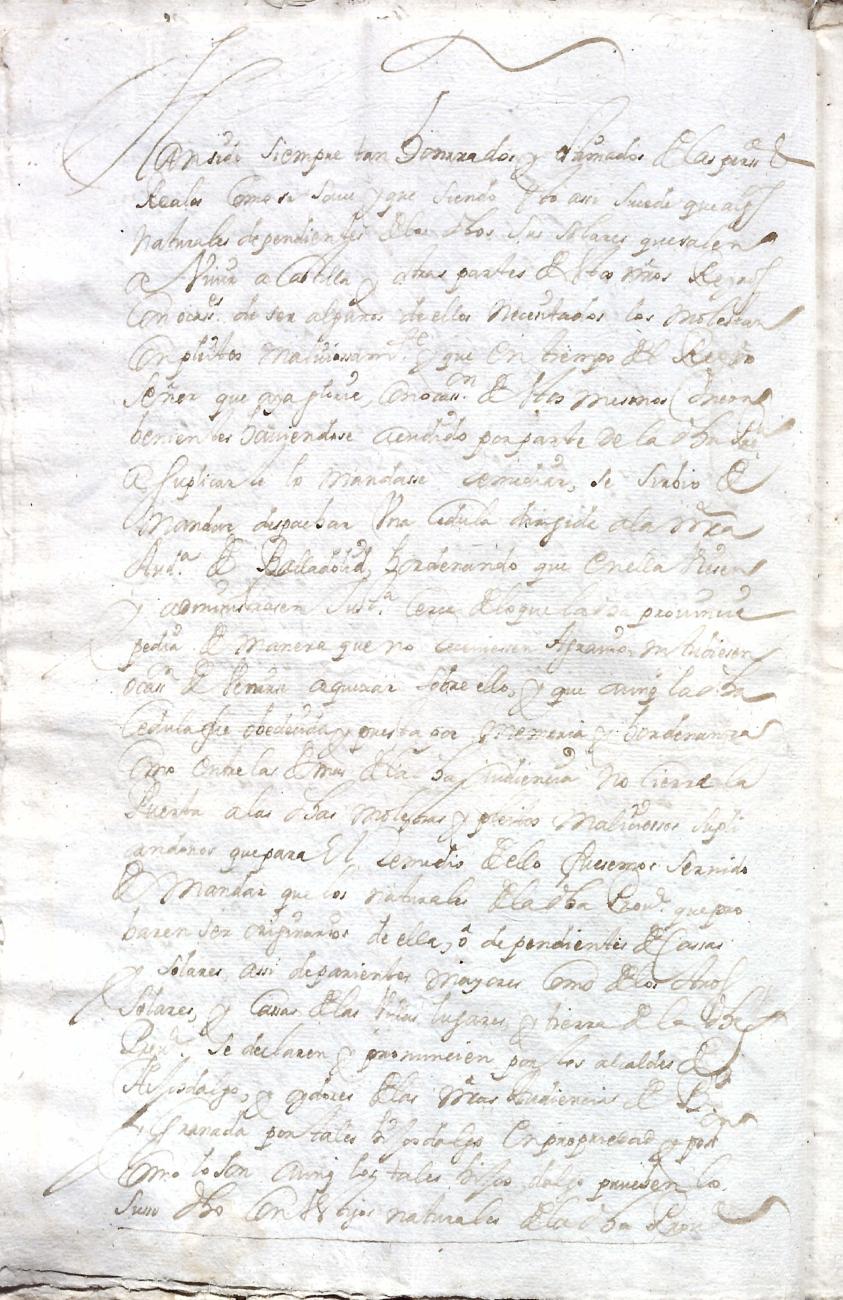 Han sido siempre tan honrrados y estimados de las perss.
Reales como se saue, y que siendo esto assi sucede que algs
naturales dependientes de los dhos sus solares que salen
a viuir a Castilla y otras partes de estos nros Reynos
con ocasn. de ser algunos de ellos necesitados los molestan
con pleitos maliciossamte y que en tiempo del Rey nro
señor que aya gloria, con ocasn. de estos mesmos incon
benientes hauiendose acudido por parte de la dha Prou
a suplicarle lo mandasse remediar, se siruio de
mandar despachar vna cedula dirigida a la nra
Auda de Balladolid, hordenando que en ella viesen
y administrasen Justa. cerca de lo que la dha prouincia
pedia de manera que no reciuiessen Agrauio, ni tubiesen
ocasn de benirse a quexar sobre ello, y que aunq la dha
cedula fue obedecida y puesta por memoria y hordenanza
como entre las demas de la dha Audiencia no cierra la
Puerta a las dhas molestias y pleitos maliciossos supli
candonos que para El remedio de ello fuesemos seruido
de Mandar que los naturales de la dha Prou. que pro
baren ser originarios de ella, o dependientes de Cassas
y solares, assi de parientes mayores como de los otros
solares, y cassas de las villas, lugares, y tierra de la dha
Prou. se declaren y pronuncien por los alcaldes de
Hijosdalgo, y oydores de las nras Audiencias de
y Granada por tales hijosdalgo en propriedad y posson
como lo son aunq los tales hijos dalgo prueben lo
suso dho con testigos naturales de la dha Prou